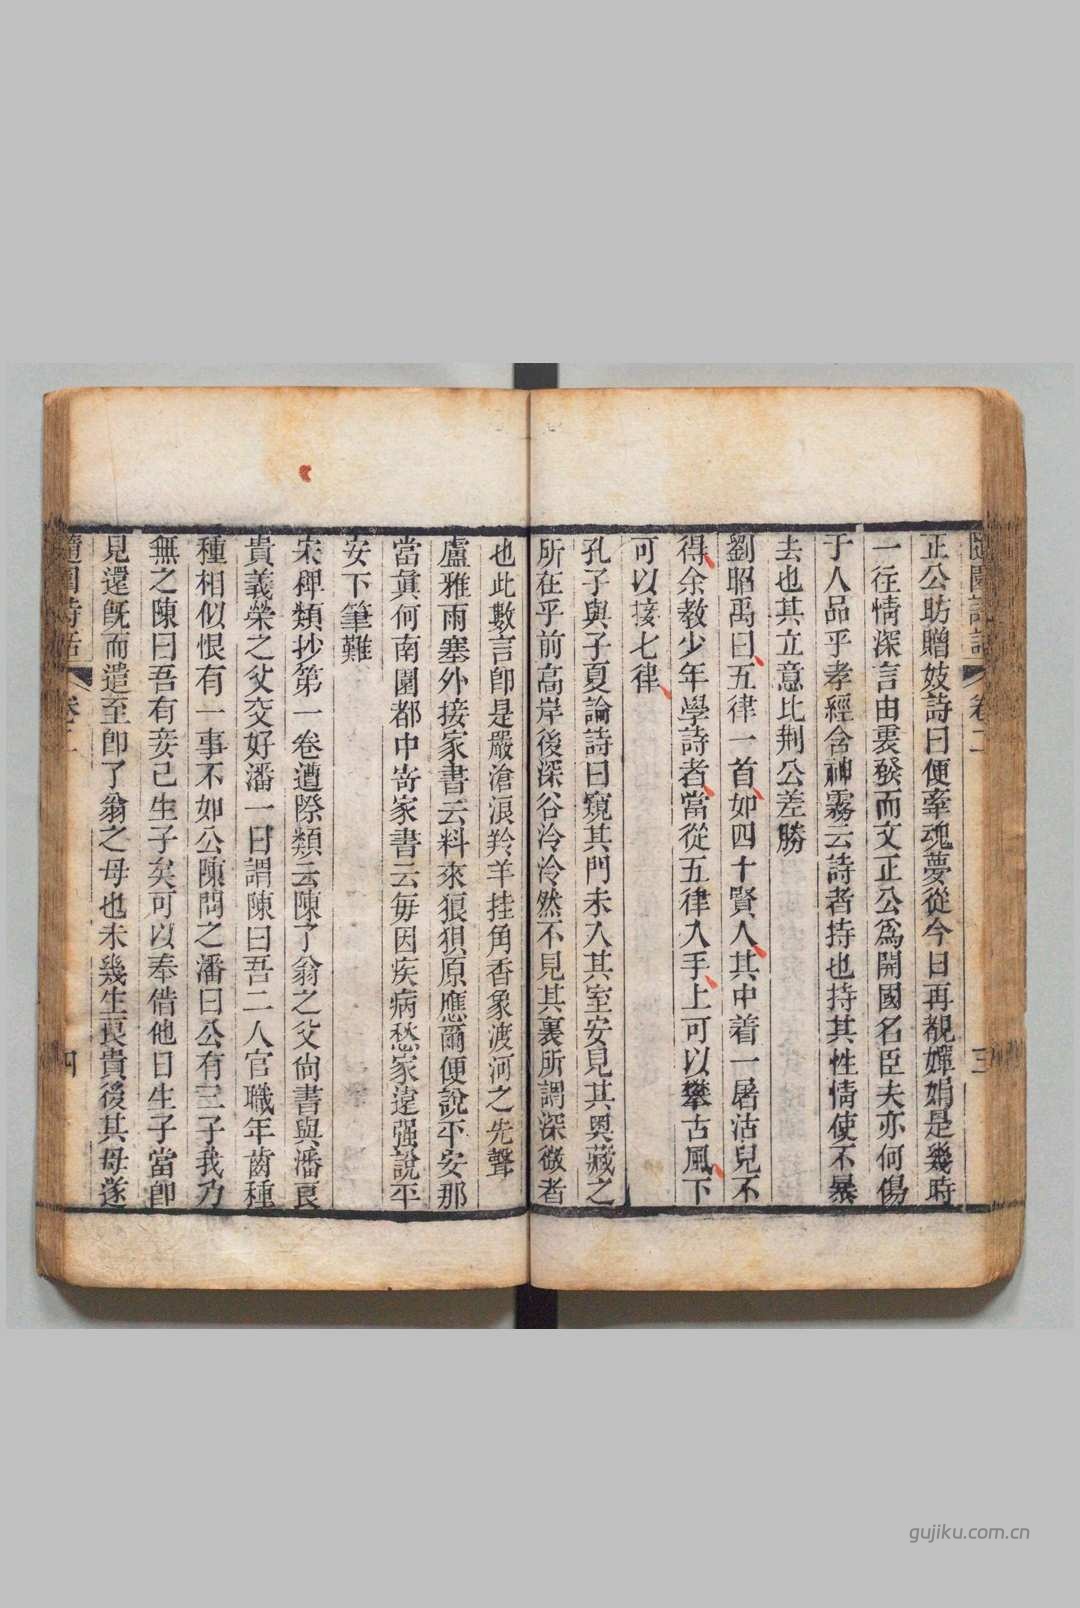 隨園詩話 卷二 三
正公昉贈妓詩曰便牽魂夢從今日再覩嬋娟是幾時
一往情深言由裏發而文正公爲開國名臣夫亦何傷
于人品乎孝經含神霧云詩者持也持其性情使不暴
去也其立意比荆公差勝
劉昭禹曰五律一首如四十賢人其中着一屠沽兒不
得余教少年學詩者當從五律入手上可以攀古風下
可以接七律
孔子與子夏論詩曰窺其門未入其室安見其奥藏之
所在乎前高岸後深谷泠泠然不見其裏所謂深微者
也此數言卽是嚴滄浪羚羊挂角香象渡河之先聲
盧雅雨塞外接家書云料來狼狽原應爾便說平安那
當眞何南園都中寄家書云每因疾病愁家遠强說平
安下筆難
宋稗類抄第一卷遭際類云陳了翁之父尙書與潘良
貴義榮之父交好潘一日謂陳曰吾二人官職年齒種
種相似恨有一事不如公陳問之潘曰公有三子我乃
無之陳曰吾有妾已生子矣可以奉借他日生子當卽
見還旣而遣至卽了翁之母也未幾生良貴後其母遂
隨園詩話 卷二 四
gujiku.com.cn